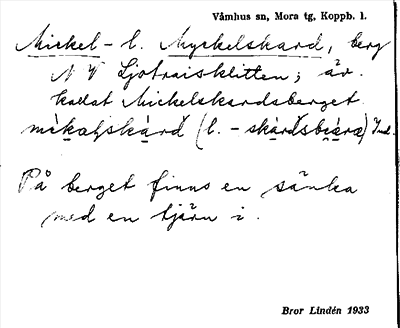 Våmhus sn, Mora tg, Koppb. l.
Mickel- l. Myckelskard, berg
N V Ljotraisklitten; äv.
kallat Mickelskardsberget.
mikalskard (l. - skardsbjära) Ind.
På berget finns en sänka
med en tjärn i.
Bror Lindén 1933